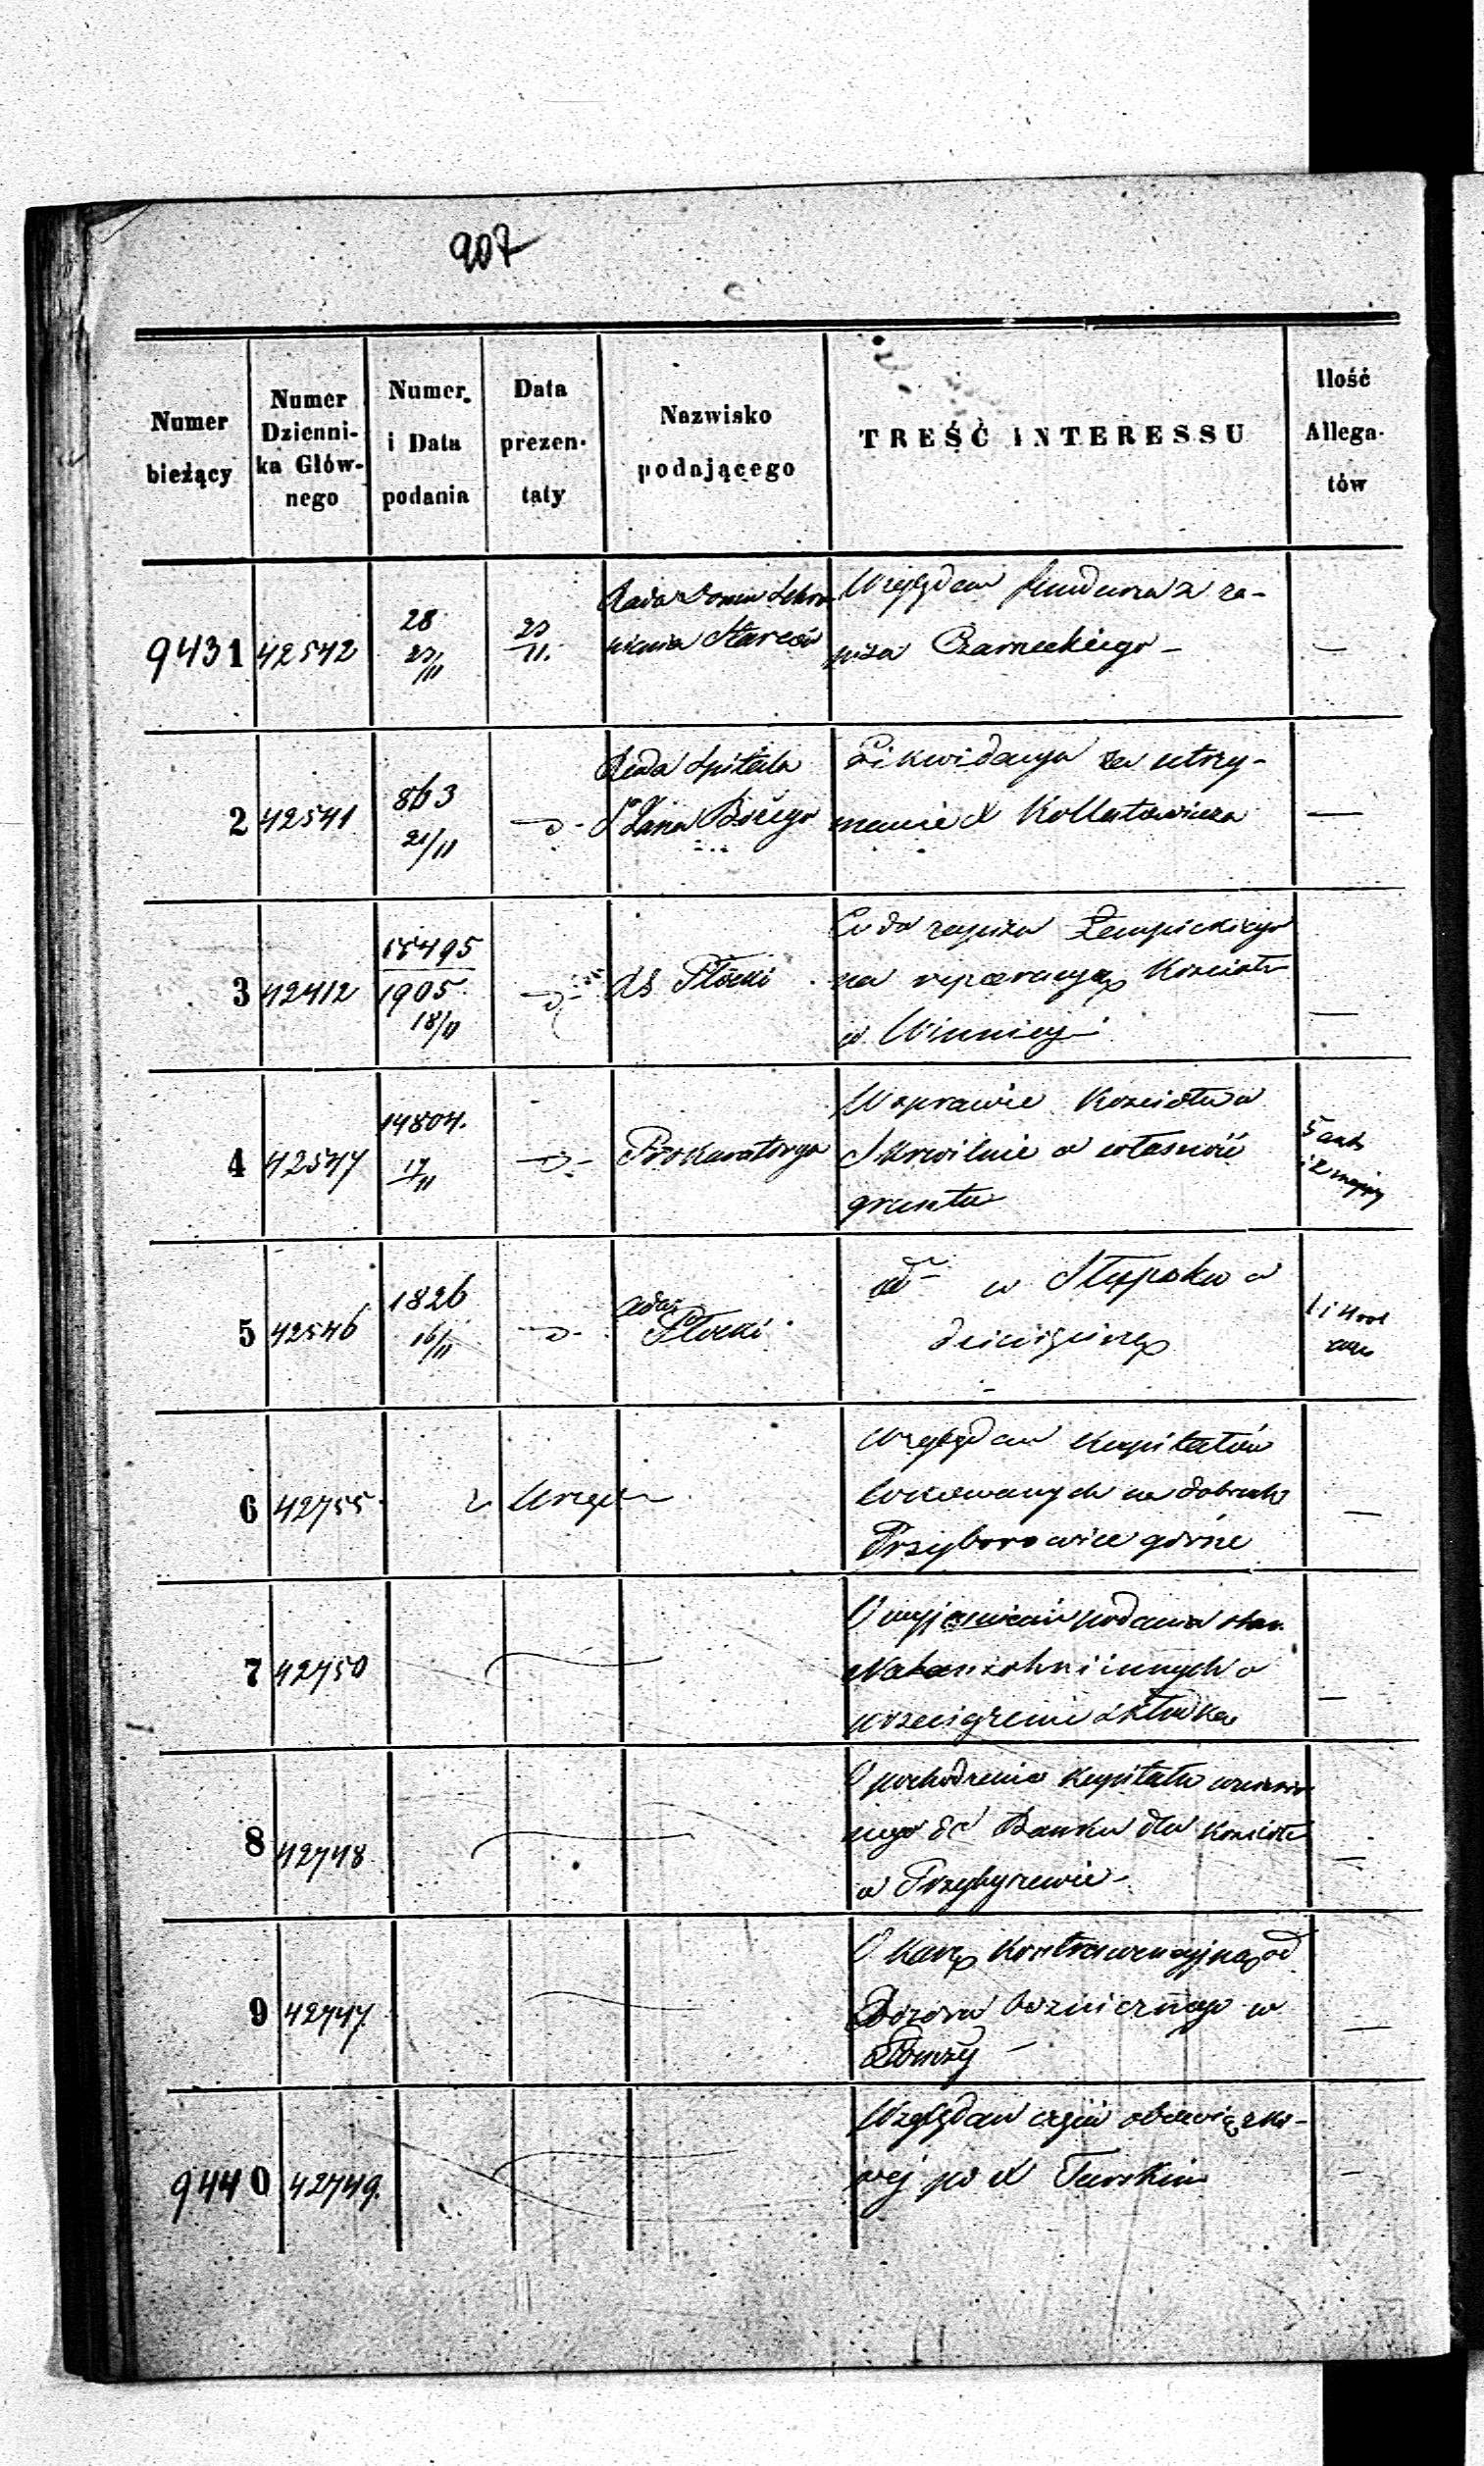 207
Numer bieżący
Numer Dzienni- ka Głów- nego
Numer i Data podania
Data prezen- taty
Nazwisko podającego
TREŚĆ INTERESSU
Ilość Allega- tów
9431 42542 28 23/11 23/11 Rada Domu Schro- nienia Starców
Względem funduszu z za-
pisu Czarneckiego -
—
2 42541 863 21/11 -D- Rada Szpitala
Sgo Jana Bożego
Likwidacya za utrzy-
manie X Kołłatowicza
—
3 42412 15495
1905
18/11 -D- Płocki
Co do zapisu Łempickiego
na reperacyą Kościoła
w Winnicy
—
4 42544 14804. 17/11 -D- Prokuratorya
W sprawie Kościoła w
Skrwilnie o własność
gruntu
5 42546 1826 16/11 -D- Płocki
w Słupsku o
dziesięcinę
6 42755 z Urzędu
Względem Kapitałów
lokowanych na dobrach
Przyborowice górne
—
7 42750
O wyjaśnienie podania
i innych o
—
8 42748
O pochodzenie Kapitału
do Banku dla Kościoła
w Przybyszewie -
—
9 42747
O karę Kontrawencyjną od
Dozoru Bożniczego w
Łomży -
—
9440 42749.
Względem części obowiązko-
wej po X Turskim
—